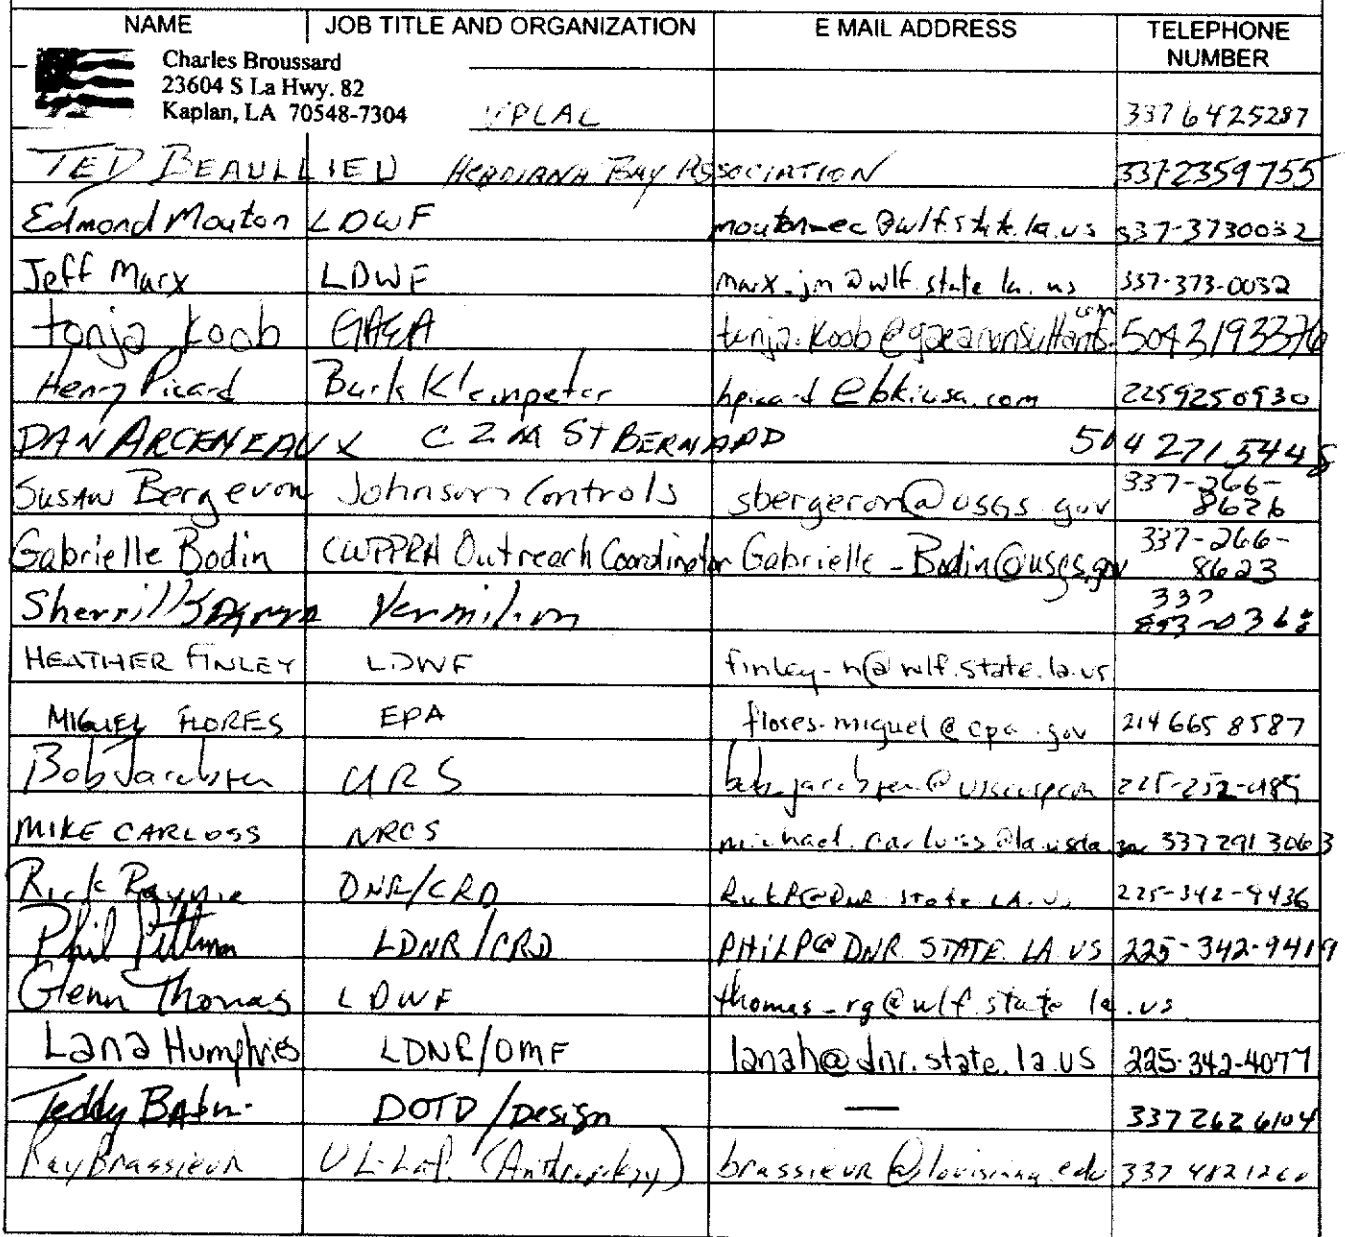 NAME JOB TITLE AND ORGANIZATION E MAIL ADDRESS TELEPHONE NUMBER
Charles Broussard
23604 S La Hwy. 82
Kaplan, LA 70548-7304 VPLAC 337 6425287
TED BEAULLIEU ACADIANA BAY ASSOCIATION 337-2359755
Edmond Mouton LDWF mouton-ec@wlf.state.la.us 337-3730032
Jeff Marx LDWF marx-jm@wlf.state.la.us 337-373-0032
tonja koob GAEA tonja.koob@gaeaconsultants.com 5043193376
Henry Picard Burk Kleinpeter hpicard@bkiusa.com 2259250930
DAN ARCENEAUX CZM ST BERNARD 504 271 5445
SUSAN Bergeron Johnson Controls sbergeron@usgs.gov 337-266-8626
Gabrielle Bodin CWPPRA Outreach Coordinator Gabrielle_Bodin@usgs.gov 337-266-8623
Sherrill Vermilion 337
HEATHER FINLEY LDWF finley-h@wlf.state.la.us
MIGUEL FLORES EPA flores.miguel@epa.gov 214 665 8587
Bob Jacobsen URS 225-252-
MIKE CARLOSS NRCS michael.carloss@la.usda.gov 337 291 3063
Rick Raynie DNR/CRD RickR@DNR.state.LA.US 225-342-9436
Phil Pittman LDNR/CRD PHILP@DNR.STATE.LA.US 225-342-9419
Glenn Thomas LDWF thomas_rg@wlf.state.la.us
Lana Humphries LDNR/OMF lanah@dnr.state.la.us 225-342-4077
Teddy DOTD/Design — 337 262 6104
Ray Brassieur UL-Laf. (Anthropology) brassieur@louisiana.edu 337 4821260